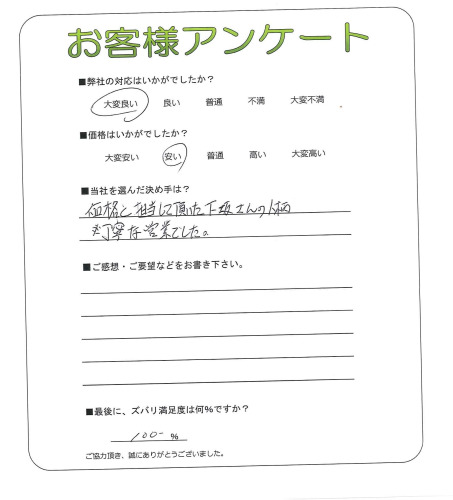 お客様アンケート
■弊社の対応はいかがでしたか？
大変良い 良い 普通 不満 大変不満
■価格はいかがでしたか？
大変安い 安い 普通 高い 大変高い
■当社を選んだ決め手は？
価格と担当して頂いた下坂さんの人柄
丁寧な営業でした。
■ご感想・ご要望などをお書き下さい。
■最後に、ズバリ満足度は何%ですか？
100- %
ご協力頂き、誠にありがとうございました。